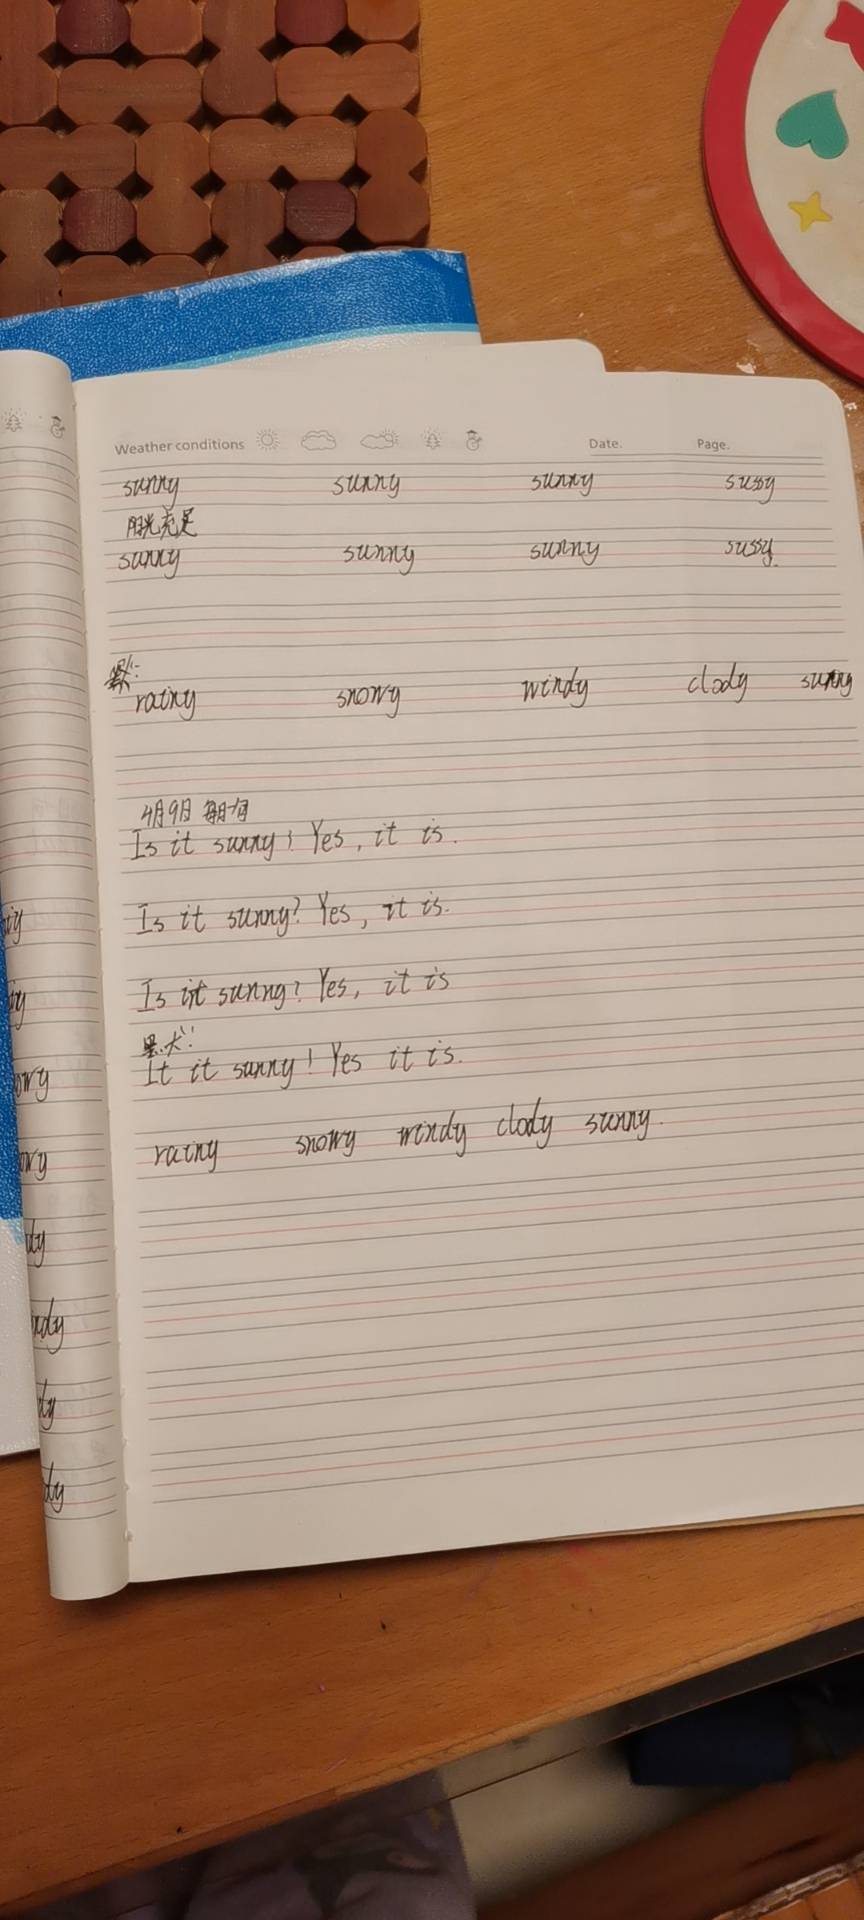 Weather conditions Date. Page.
sunny sunny sunny sussy
阳光充足
sunny sunny sunny sussy.
默:
rainy snowy windy clody sunny
4月9日 每日一句
Is it sunny? Yes, it is.
Is it sunny? Yes, it is.
Is it sunny? Yes, it is
It it sunny! Yes it is.
rainy snowy windy clody sunny.